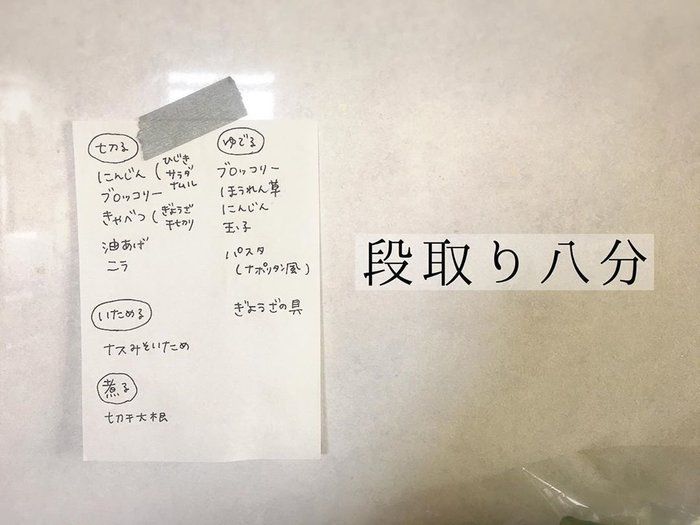 切る
にんじん(ひじき
サラダ
ナムル
ブロッコリー
きゃべつ(ぎょうざ
千切り
油あげ
ニラ
いためる
ナスみそいため
煮る
切干大根
ゆでる
ブロッコリー
ほうれん草
にんじん
玉子
パスタ
(ナポリタン風)
ぎょうざの具
段取り八分